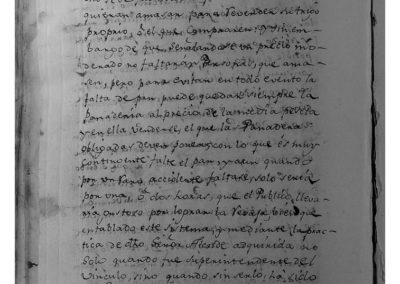 quieran amasar, para vender su trigo
proprio, ô el que compraren: Y sin em-
bargo de que señalandose un precio mo-
derado no faltaran Personas, que ama-
sen, pero para evitar en todo evento la
falta de pan, puede quedar siempre la
Panaderia al precio de la media
y en ella venderse, el que las Panaderas
obligadas deven poner, con lo que es muy
contingente falte el pan, y aun quando
por un raro accidente faltase, solo seria
por una, ô dos horas, que el Publico lleva-
ra gustoso por lograr la
entablado este sistema, y mediante la prac-
tica de dho Señor Alcalde adquirida no
solo quando fue superintendente del
Vinculo, sino quando sin serlo, ha sido